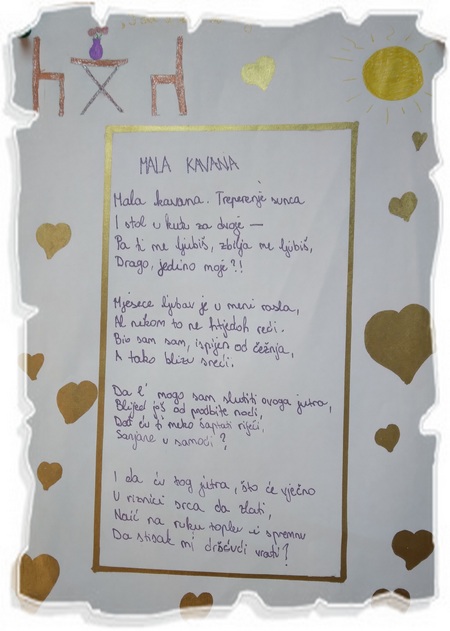 MALA KAVANA
Mala kavana. Treperenje sunca
I stol u kutu za dvoje —
Pa ti me ljubiš, zbilja me ljubiš,
Drago, jedino moje?!
Mjesece ljubav je u meni rasla,
Al nekom to ne htjedoh reći.
Bio sam sam, ispijen od čežnja,
A tako blizu sreći.
Da l' mogo sam slutiti ovoga jutra,
Blijed još od probdite noći,
Doć ću ti meko šaptati riječi,
Sanjane u samoći?
I da ću tog jutra, što će vječno
U riznici srca da zlati,
Naić na ruku toplu i spremnu
Da stisak mi dršćući vrati?